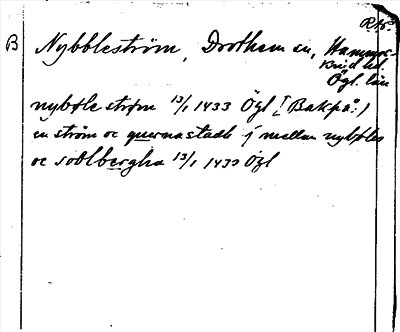 R15.
B Nybbleström, Drothem sn, Hammar-
kind hd.
Ögl. län
nybṡle strøm 13/1 1433 Ögl (Bakpå:)
en ström oc quernastadh j mellan nybṡles
oc soolbergha 13/1 1433 Ögl